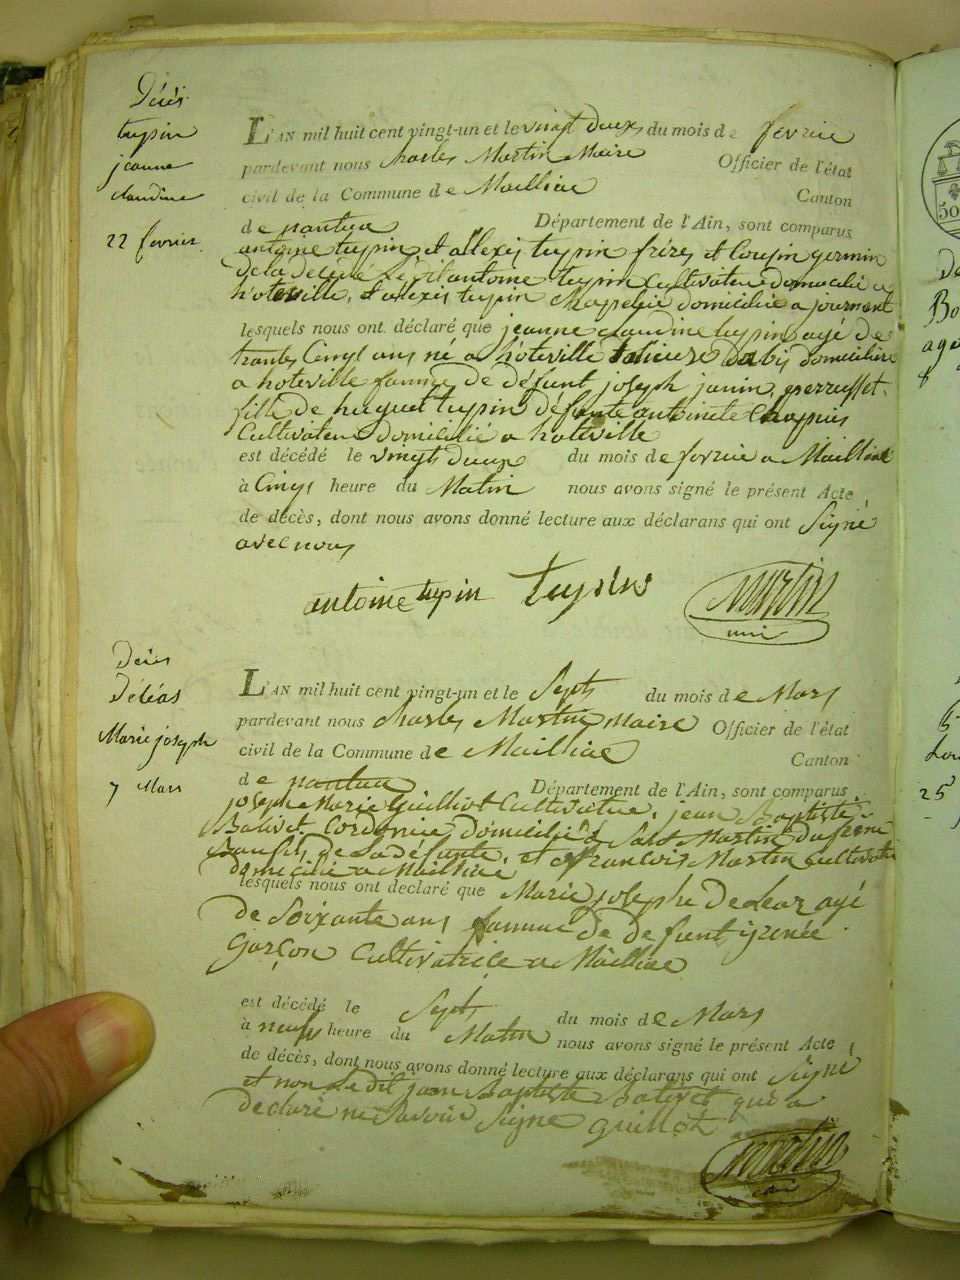 Décès
tupin
jeanne
claudine
22 fevrier
L'AN mil huit cent vingt-un et le vingt deux du mois de fevrie
pardevant nous Charles Martin Maire Officier de l'état
civil de la Commune de Mailliac Canton
de nantua Département de l'Ain, sont comparus
antoine tupin et allexis tupin frères et Cousin germin
de la décédé antoine tupin Cultivateur domicilié a
hoteville, et alexis tupin domicilié a journent
lesquels nous ont déclaré que jeanne claudine tupin agé de
trante Cinq ans né a hoteville domicilière
a hoteville famme de défunt joseph janin
fille de huguet tupin défunte antoinete Chapuis
Cultivateur domicilié a hoteville
est décédé le vingt deux du mois de fevrie a Mailliat
à Cinq heure du Matin nous avons signé le présent Acte
de décès, dont nous avons donné lecture aux déclarans qui ont Signé
avec nous
antoine tupin tupin Martin
Décès
Déléas
Marie joseph
7 Mars
L'AN mil huit cent vingt-un et le Sept du mois de Mars
pardevant nous Charles Martin maire Officier de l'état
civil de la Commune de Mailliac Canton
de nantua Département de l'Ain, sont comparus
joseph Marie Guilliot Cultivateur, jean Baptiste
Balivet Cordonnie domicilié a Saint Martin du frene
de la défunte, et francois Martin Cultivate
domicilié a Mailliac
lesquels nous ont declaré que Marie josephe Deleaz agé
de Soixante ans famme de defunt
Garçon Cultivatrice a Mailliac
est décédé le Sept du mois de Mars
à neuf heure du Matin nous avons signé le présent Acte
de décès, dont nous avons donné lecture aux déclarans qui ont Signé
et non le dit jean Baptiste Balivet qui a
declaré ne Savoir Signe Guilliot
Martin